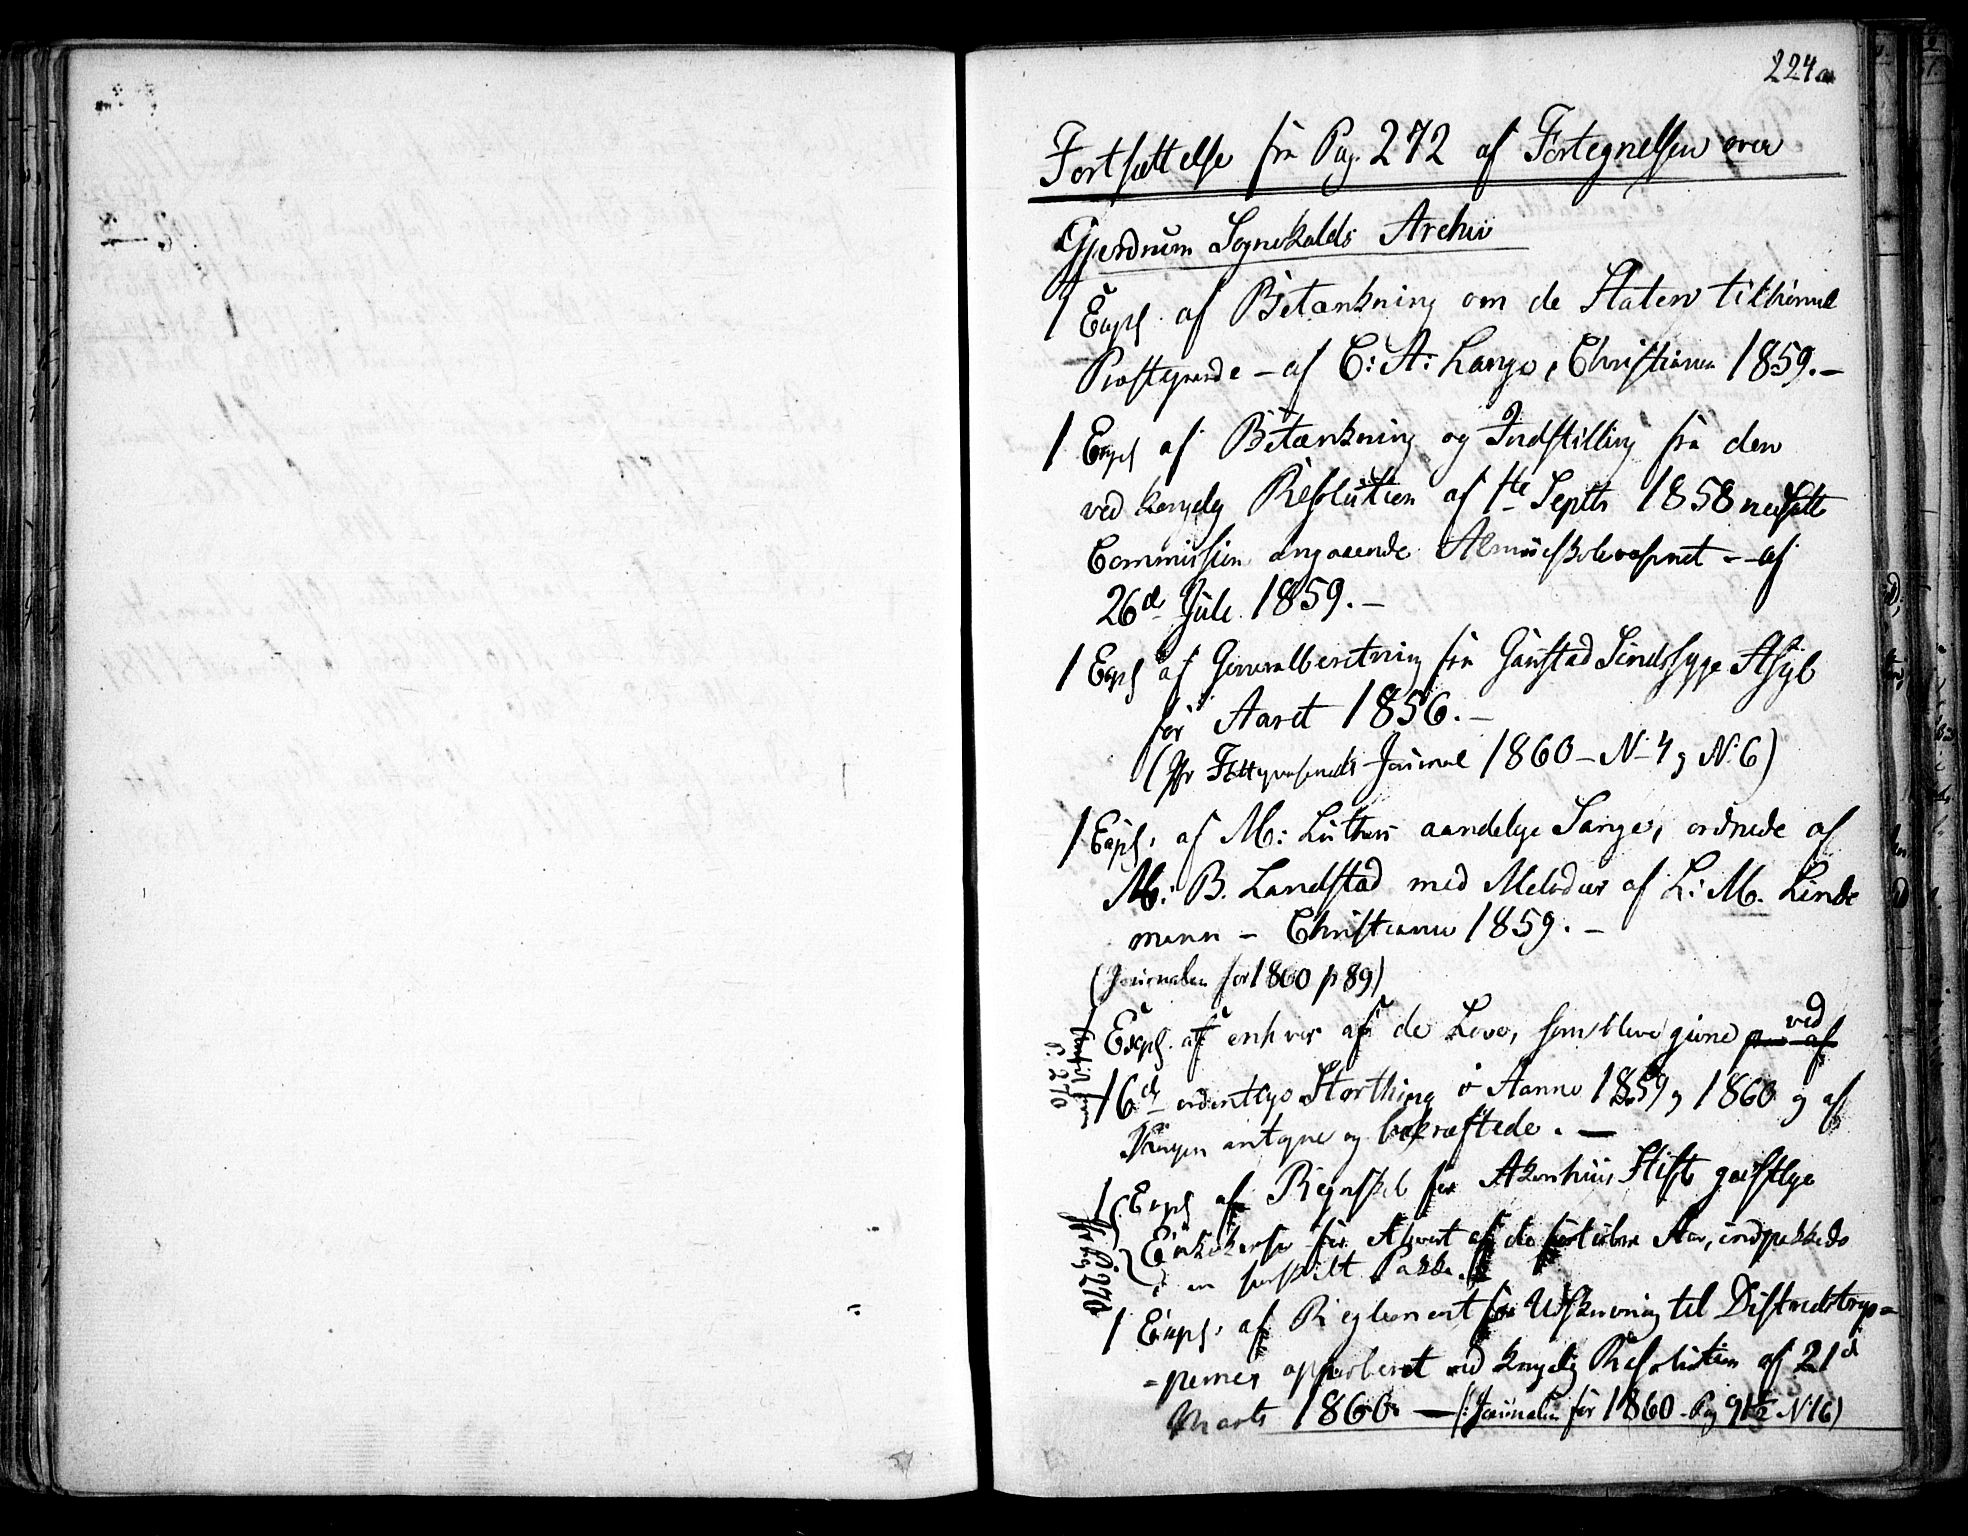 224a
Fortsættelse fra Pag. 272 af Fortegnelsen over
Gjerdrum Sognekalds Archiv
1 Expl af Betænkning om de Staten tilhørende
Præstegaarde – af C: A: Lange, Christiania 1859. –
1 Expl af Betænkning og Indstilling fra den
ved kongelig Resolution af 1te Septbr 1858 nedsatte
Commission angaaende Almueskolevæsenet – af
26de Juli 1859. –
1 Expl af Generalberetning fra Gaustad Sindssyge Asyl
for Aaret 1856. –
(Jfr Fattigvæsenets Journal 1860 – N. 4 og N: 6)
1 Expl. af M: Luthers aandelige Sange, ordnede af
M: B. Landstad med Melodier af L: M. Linde
mann – Christiania 1859. –
(Journalen for 1860 p 89)
1 Expl. af enhver af de Love, som bleve givne paa af ved
16de ordentlige Storthing i Aarene 1859 og 1860 og af
Kongen antagne og bekræftede. –
p. 270
1 Expl af Regnskab for Akershuus Stifts geistlige
Enkekasse for hvert af de sidste Aar, indpakkede
i en særskilt Pakke.
Jfr Pag 270
1 Expl. af Reglement for Udskrivning til Districtstrop=
=perne, approberet ved kongelig Resolution af 21de
Marts 1860 – (: Journalen for 1860 Pag 91½ N: 16)